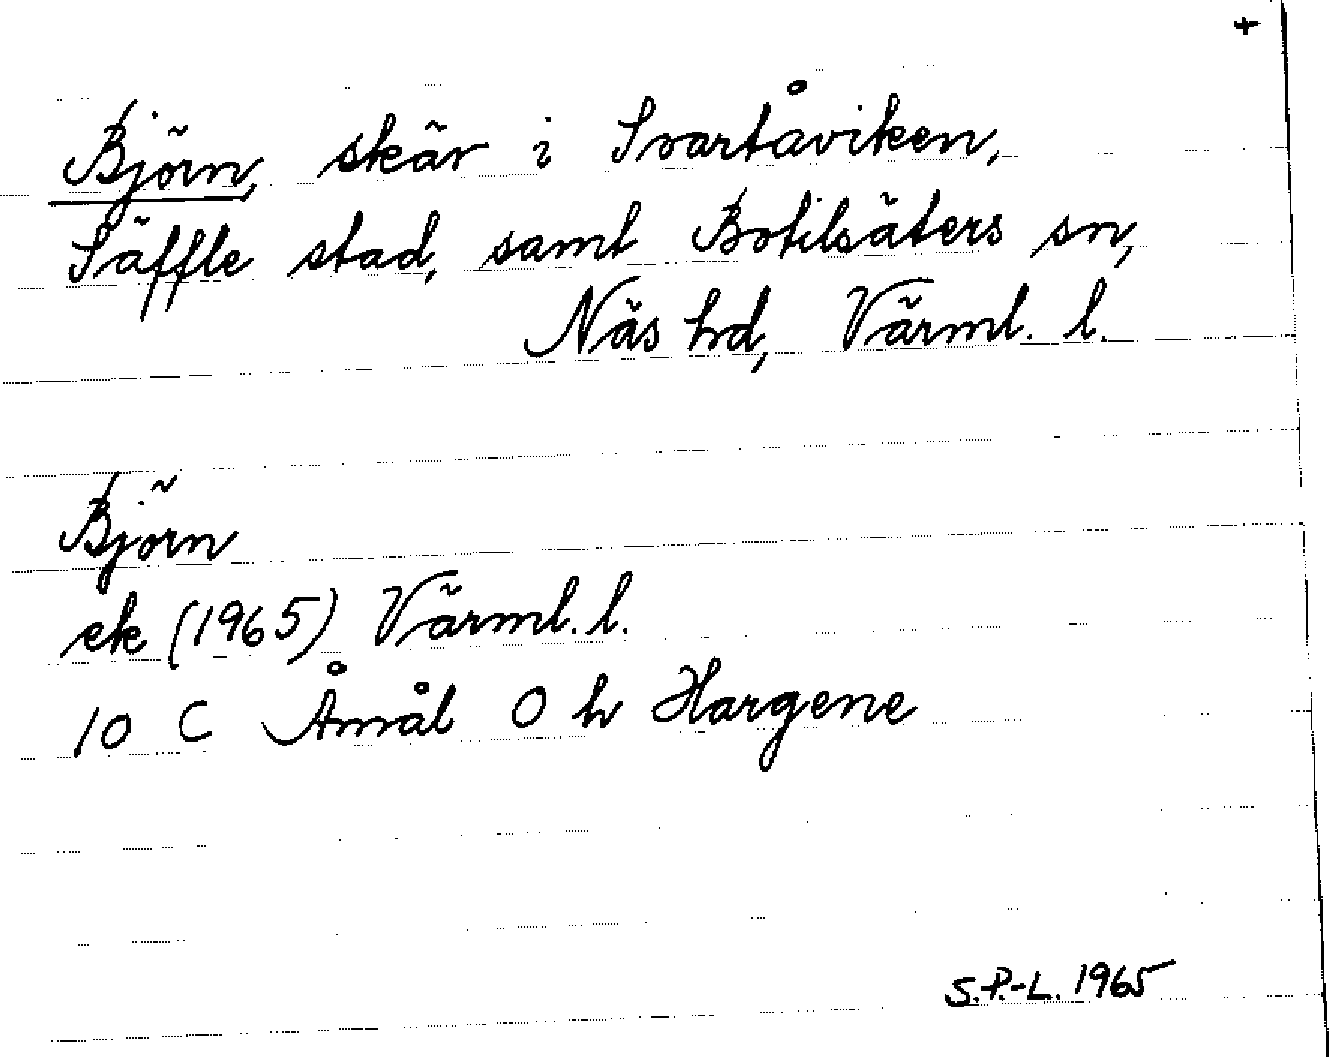 +
Björn, skär i Svartåviken,
Säffle stad, samt Botilsäters sn,
Näs hd, Värml. l.
Björn
ek (1965) Värml. l.
10 C Åmål O h Hargene
S.P.-L. 1965